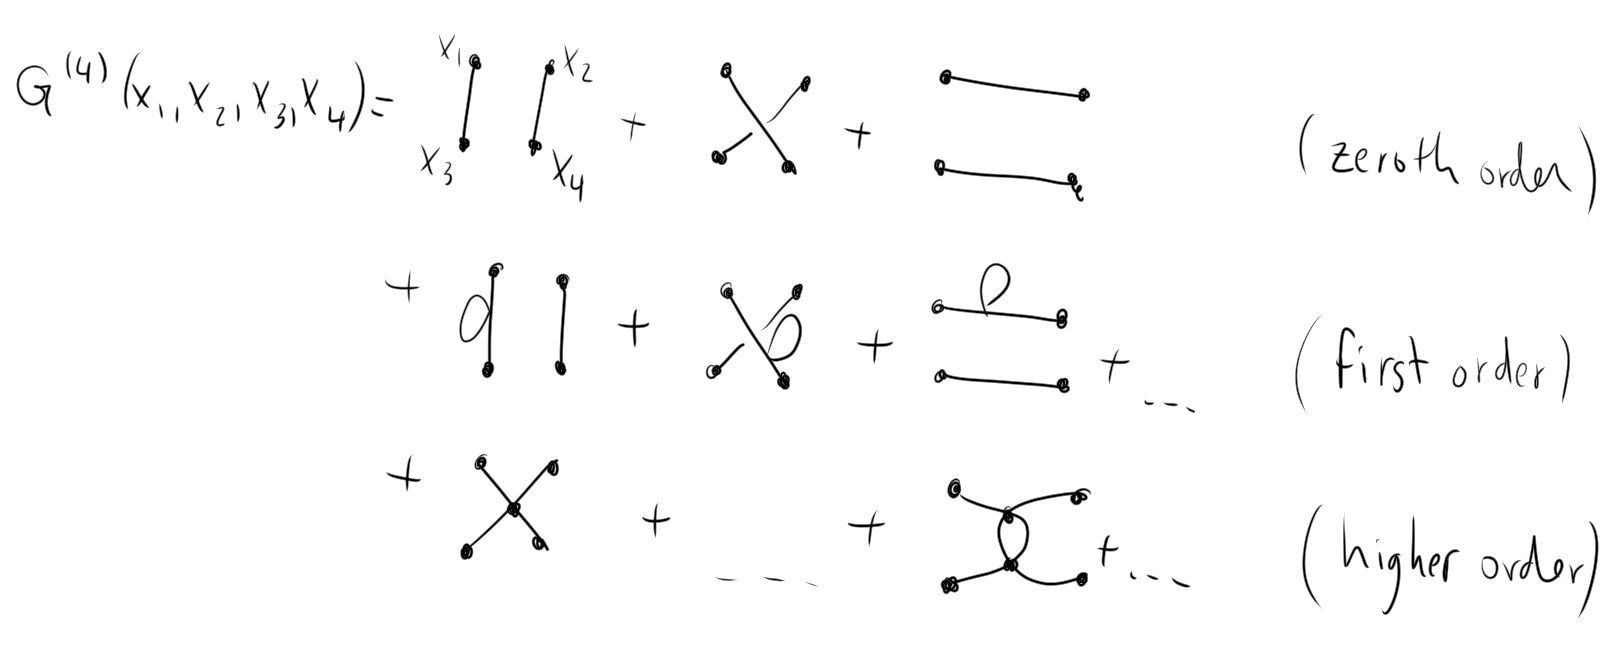 G^(4)(x_1, x_2, x_3, x_4) = x_1 x_2 + + (zeroth order)
x_3 x_4
+ + + + ... (first order)
+ + --- + + ... (higher order)